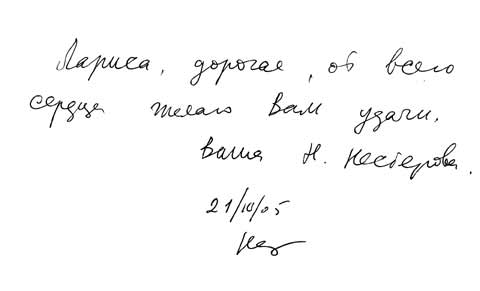 Лариса, дорогая, от всего
сердца желаю Вам удачи.
Ваша Н. Нестерова.
21/10/05